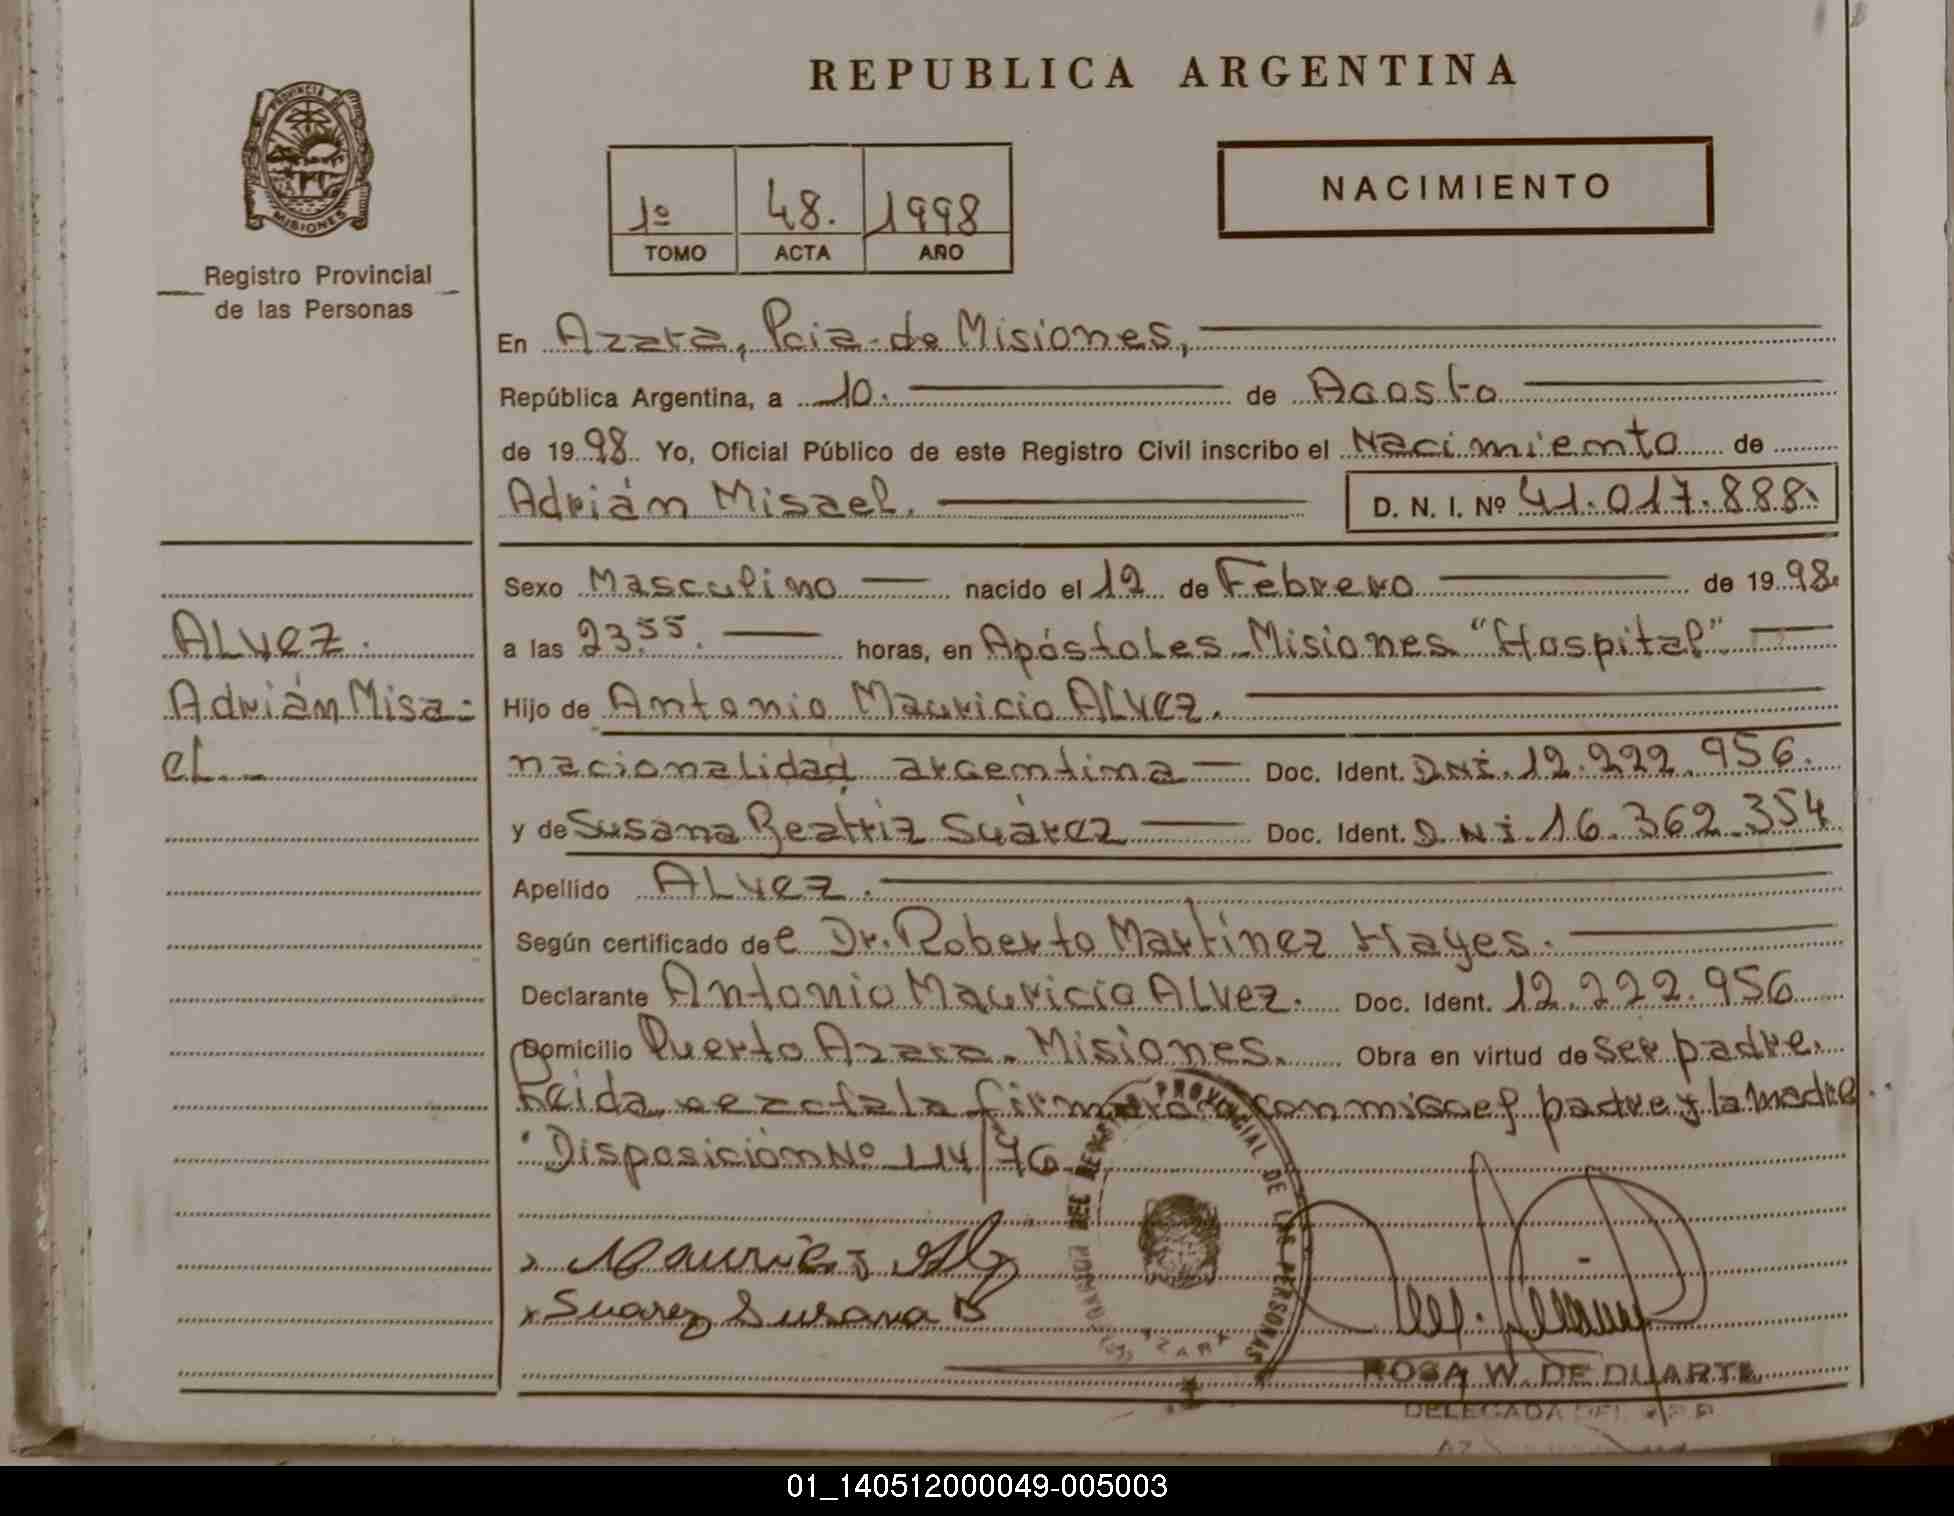 REPUBLICA ARGENTINA
PROVINCIA DE
MISIONES
Registro Provincial
de las Personas
1º 48. 1998
TOMO ACTA AÑO
NACIMIENTO
En Azara, Pcia. de Misiones,
República Argentina, a 10. de Agosto
de 1998 Yo, Oficial Público de este Registro Civil inscribo el Nacimiento de
Adrián Misael. D. N. I. Nº 41.017.888.
ALvez.
Adrián Misa-
el.-
Sexo Masculino nacido el 12 de Febrero de 1998.
a las 23.55. horas, en Apóstoles - Misiones "Hospital"
Hijo de Antonio Mauricio ALvez.
nacionalidad argentina Doc. Ident. DNI. 12.222.956.
y de Susana Beatriz Suárez Doc. Ident. DNI 16.362.354
Apellido ALvez.
Según certificado de Dr. Roberto Martínez Hayes.
Declarante Antonio Mauricio ALvez. Doc. Ident. 12.222.956
Domicilio Puerto Azara - Misiones. Obra en virtud de ser padre.
Leída el acta la firmaron conmigo el padre y la madre.
Disposición Nº 114/76
Suarez Susana B
PROVINCIAL DE LAS PERSONAS
ROSA W. DE DUARTE
DELEGADA DEL R.P.P.
01_140512000049-005003